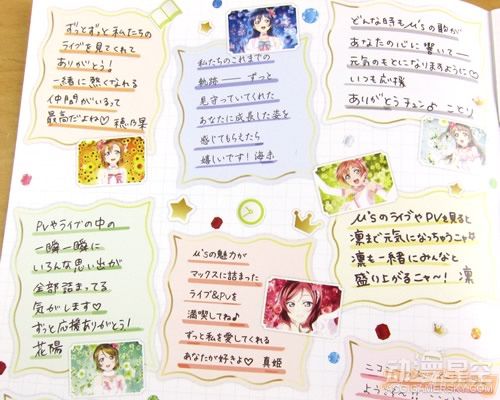 ずっとずっと私たちの
ライブを見てくれて
ありがとう!
一緒に熱くなれる
仲間がいるって
最高だよね♡ 穂乃果
私たちのこれまでの
軌跡── ずっと
見守っていてくれた
あなたに成長した姿を
感じてもらえたら
嬉しいです! 海未
どんな時もμ'sの歌が
あなたの心に響いて─
元気のもとになりますように♡
いつも応援
ありがとうチュン♪ ことり
PVやライブの中の
一瞬一瞬に
いろんな思い出が
全部詰まってる
気がします♡
ずっと応援ありがとう!
花陽
μ'sの魅力が
マックスに詰まった
ライブ&PVを
満喫してね♪
ずっと私を愛してくれる
あなたが好きよ♡ 真姫
μ'sのライブやPVを見ると
凛まで元気になっちゃうニャ
凛も一緒にみんなと
盛り上がるニャ〜! 凛
ニコ
よう
动漫星空
ACG.GAMERSKY.COM